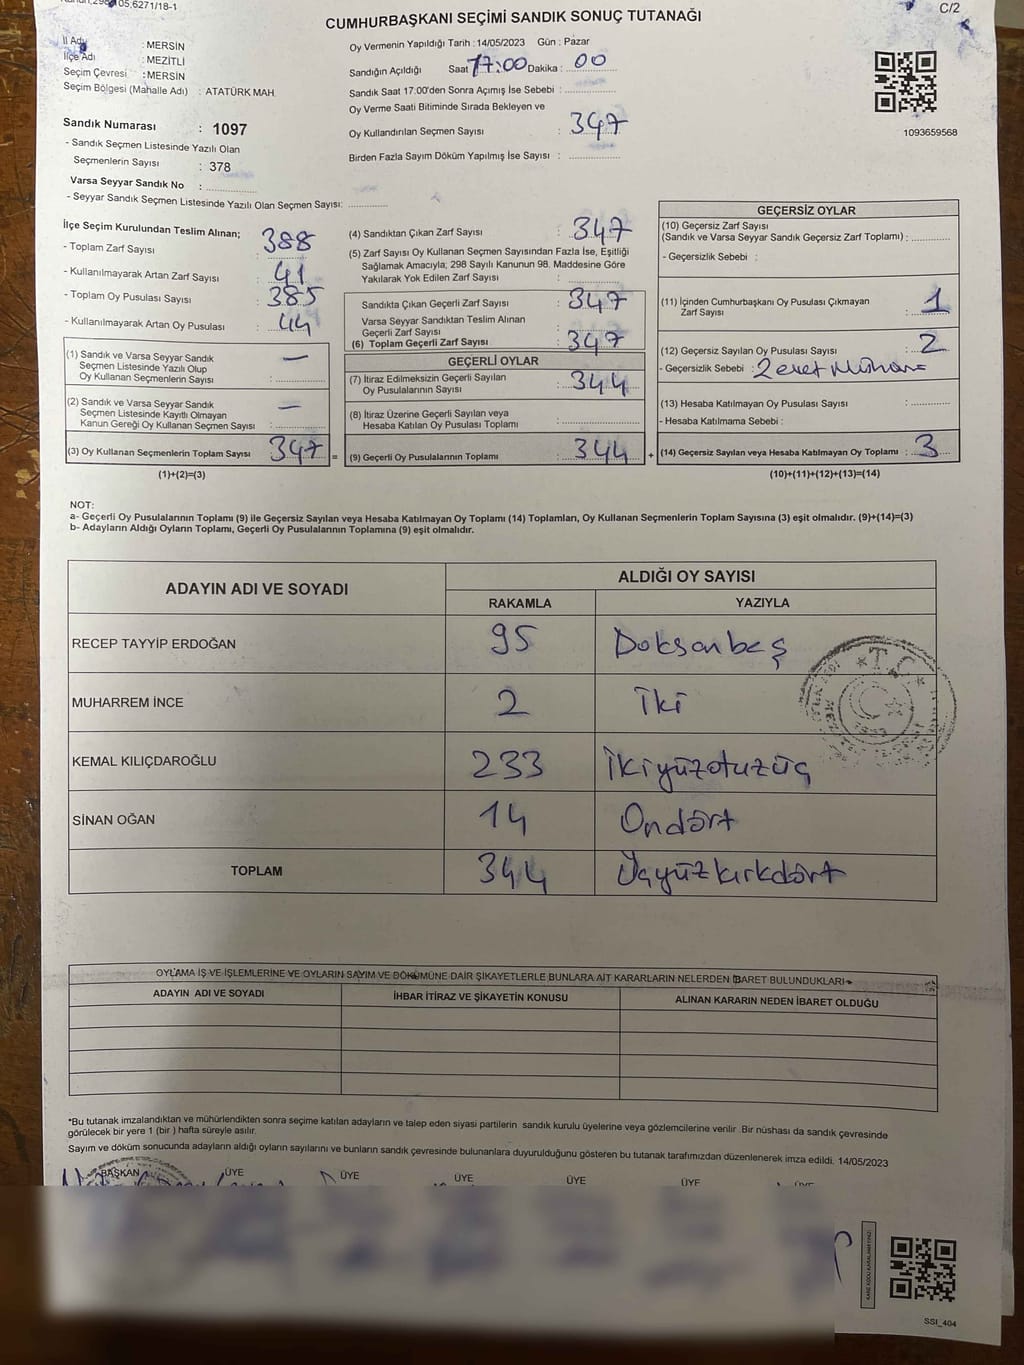 05.6271/18-1
C/2
CUMHURBAŞKANI SEÇİMİ SANDIK SONUÇ TUTANAĞI
İl Adı : MERSİN
İlçe Adı : MEZİTLİ
Seçim Çevresi : MERSİN
Seçim Bölgesi (Mahalle Adı) : ATATÜRK MAH.
Sandık Numarası : 1097
- Sandık Seçmen Listesinde Yazılı Olan
Seçmenlerin Sayısı : 378
Varsa Seyyar Sandık No : ..............
- Seyyar Sandık Seçmen Listesinde Yazılı Olan Seçmen Sayısı: ............
Oy Vermenin Yapıldığı Tarih : 14/05/2023 Gün : Pazar
Sandığın Açıldığı Saat 17:00 Dakika : 00
Sandık Saat 17:00'den Sonra Açımış İse Sebebi : ..............
Oy Verme Saati Bitiminde Sırada Bekleyen ve
Oy Kullandırılan Seçmen Sayısı : 347
Birden Fazla Sayım Döküm Yapılmış İse Sayısı : ..............
1093659568
İlçe Seçim Kurulundan Teslim Alınan;
- Toplam Zarf Sayısı : 388
- Kullanılmayarak Artan Zarf Sayısı : 41
- Toplam Oy Pusulası Sayısı : 385
- Kullanılmayarak Artan Oy Pusulası : 44
(1) Sandık ve Varsa Seyyar Sandık —
Seçmen Listesinde Yazılı Olup
Oy Kullanan Seçmenlerin Sayısı : ..............
(2) Sandık ve Varsa Seyyar Sandık —
Seçmen Listesinde Kayıtlı Olmayan
Kanun Gereği Oy Kullanan Seçmen Sayısı : ..............
(3) Oy Kullanan Seçmenlerin Toplam Sayısı 347 =
(1)+(2)=(3)
(4) Sandıktan Çıkan Zarf Sayısı : 347
(5) Zarf Sayısı Oy Kullanan Seçmen Sayısından Fazla İse, Eşitliği
Sağlamak Amacıyla; 298 Sayılı Kanunun 98. Maddesine Göre
Yakılarak Yok Edilen Zarf Sayısı : ..............
Sandıkta Çıkan Geçerli Zarf Sayısı : 347
Varsa Seyyar Sandıktan Teslim Alınan
Geçerli Zarf Sayısı : ..............
(6) Toplam Geçerli Zarf Sayısı : 347
GEÇERLİ OYLAR
(7) İtiraz Edilmeksizin Geçerli Sayılan
Oy Pusulalarının Sayısı : 344
(8) İtiraz Üzerine Geçerli Sayılan veya
Hesaba Katılan Oy Pusulası Toplamı : ..............
(9) Geçerli Oy Pusulalarının Toplamı : 344 +
GEÇERSİZ OYLAR
(10) Geçersiz Zarf Sayısı
(Sandık ve Varsa Seyyar Sandık Geçersiz Zarf Toplamı) : ............
- Geçersizlik Sebebi :
(11) İçinden Cumhurbaşkanı Oy Pusulası Çıkmayan
Zarf Sayısı : 1
(12) Geçersiz Sayılan Oy Pusulası Sayısı : 2
- Geçersizlik Sebebi : 2
(13) Hesaba Katılmayan Oy Pusulası Sayısı : ............
- Hesaba Katılmama Sebebi :
(14) Geçersiz Sayılan veya Hesaba Katılmayan Oy Toplamı : 3
(10)+(11)+(12)+(13)=(14)
NOT:
a- Geçerli Oy Pusulalarının Toplamı (9) ile Geçersiz Sayılan veya Hesaba Katılmayan Oy Toplamı (14) Toplamları, Oy Kullanan Seçmenlerin Toplam Sayısına (3) eşit olmalıdır. (9)+(14)=(3)
b- Adayların Aldığı Oyların Toplamı, Geçerli Oy Pusulalarının Toplamına (9) eşit olmalıdır.
ADAYIN ADI VE SOYADI
ALDIĞI OY SAYISI
RAKAMLA YAZIYLA
RECEP TAYYİP ERDOĞAN 95 Doksanbeş
MUHARREM İNCE 2 İki
KEMAL KILIÇDAROĞLU 233 İkiyüzotuzüç
SİNAN OĞAN 14 Ondört
TOPLAM 344 Üçyüzkırkdört
T.C.
OYLAMA İŞ VE İŞLEMLERİNE VE OYLARIN SAYIM VE DÖKÜMÜNE DAİR ŞİKAYETLERLE BUNLARA AİT KARARLARIN NELERDEN İBARET BULUNDUKLARI
ADAYIN ADI VE SOYADI İHBAR İTİRAZ VE ŞİKAYETİN KONUSU ALINAN KARARIN NEDEN İBARET OLDUĞU
*Bu tutanak imzalandıktan ve mühürlendikten sonra seçime katılan adayların ve talep eden siyasi partilerin sandık kurulu üyelerine veya gözlemcilerine verilir. Bir nüshası da sandık çevresinde
görülecek bir yere 1 (bir) hafta süreyle asılır.
Sayım ve döküm sonucunda adayların aldığı oyların sayılarını ve bunların sandık çevresinde bulunanlara duyurulduğunu gösteren bu tutanak tarafımızdan düzenlenerek imza edildi. 14/05/2023
BAŞKAN ÜYE ÜYE ÜYE ÜYE ÜYE ÜYE
SSI_404